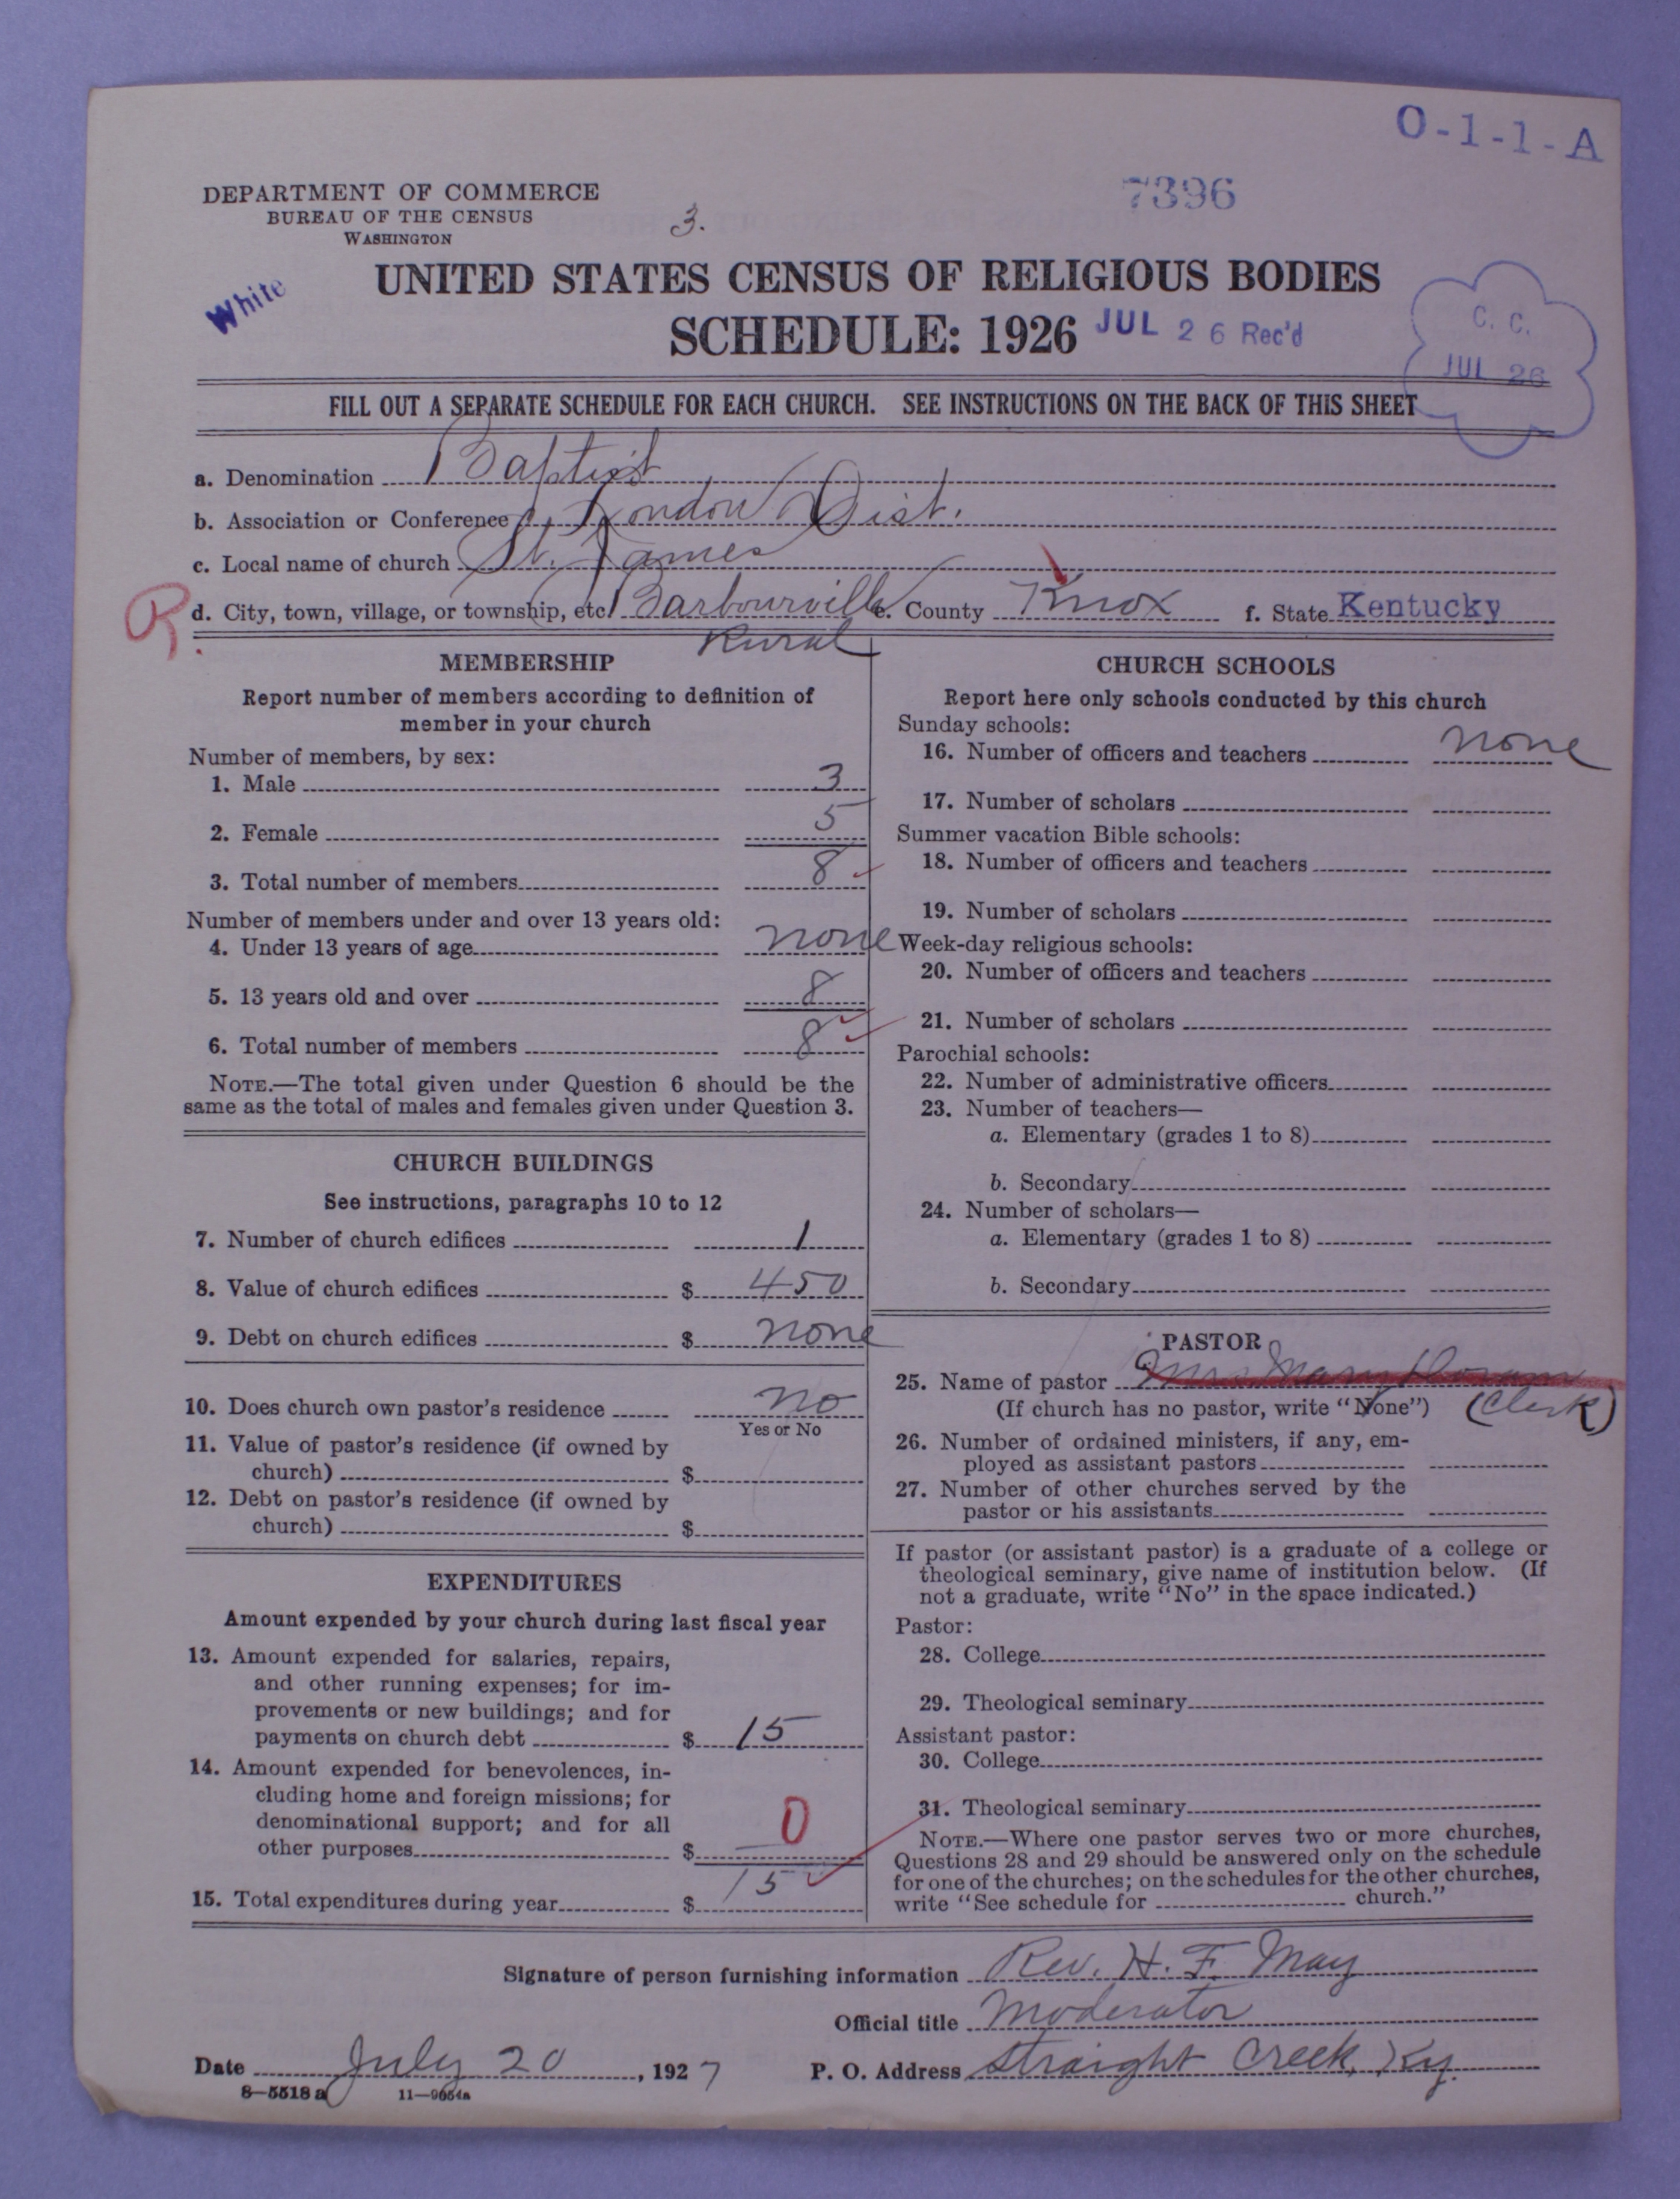 O-1-1-A
7396
DEPARTMENT OF COMMERCE
BUREAU OF THE CENSUS
WASHINGTON
3.
White
UNITED STATES CENSUS OF RELIGIOUS BODIES
SCHEDULE: 1926
JUL 26 Rec'd
C. C.
JUL 26
FILL OUT A SEPARATE SCHEDULE FOR EACH CHURCH. SEE INSTRUCTIONS ON THE BACK OF THIS SHEET
a. Denomination Baptist
b. Association or Conference London Dist.
c. Local name of church St. James
R. d. City, town, village, or township, etc. Barbourville e. County Knox f. State Kentucky
Rural
MEMBERSHIP
Report number of members according to definition of
member in your church
Number of members, by sex:
1. Male 3
2. Female 5
3. Total number of members 8
Number of members under and over 13 years old:
4. Under 13 years of age none
5. 13 years old and over 8
6. Total number of members 8
NOTE.—The total given under Question 6 should be the
same as the total of males and females given under Question 3.
CHURCH BUILDINGS
See instructions, paragraphs 10 to 12
7. Number of church edifices 1
8. Value of church edifices $ 450
9. Debt on church edifices $ none
10. Does church own pastor's residence no
Yes or No
11. Value of pastor's residence (if owned by
church) $
12. Debt on pastor's residence (if owned by
church) $
EXPENDITURES
Amount expended by your church during last fiscal year
13. Amount expended for salaries, repairs,
and other running expenses; for im-
provements or new buildings; and for
payments on church debt $ 15
14. Amount expended for benevolences, in-
cluding home and foreign missions; for
denominational support; and for all
other purposes $ 0
15. Total expenditures during year $ 15
CHURCH SCHOOLS
Report here only schools conducted by this church
Sunday schools:
16. Number of officers and teachers none
17. Number of scholars
Summer vacation Bible schools:
18. Number of officers and teachers
19. Number of scholars
Week-day religious schools:
20. Number of officers and teachers
21. Number of scholars
Parochial schools:
22. Number of administrative officers
23. Number of teachers—
a. Elementary (grades 1 to 8)
b. Secondary
24. Number of scholars—
a. Elementary (grades 1 to 8)
b. Secondary
PASTOR
25. Name of pastor Mrs Mary
(If church has no pastor, write "None") (Clerk)
26. Number of ordained ministers, if any, em-
ployed as assistant pastors
27. Number of other churches served by the
pastor or his assistants
If pastor (or assistant pastor) is a graduate of a college or
theological seminary, give name of institution below. (If
not a graduate, write "No" in the space indicated.)
Pastor:
28. College
29. Theological seminary
Assistant pastor:
30. College
31. Theological seminary
NOTE.—Where one pastor serves two or more churches,
Questions 28 and 29 should be answered only on the schedule
for one of the churches; on the schedules for the other churches,
write "See schedule for church."
Signature of person furnishing information Rev. H. F. May
Official title Moderator
Date July 20, 1927 P. O. Address Straight Creek, Ky.
8—5518 a 11—9654a